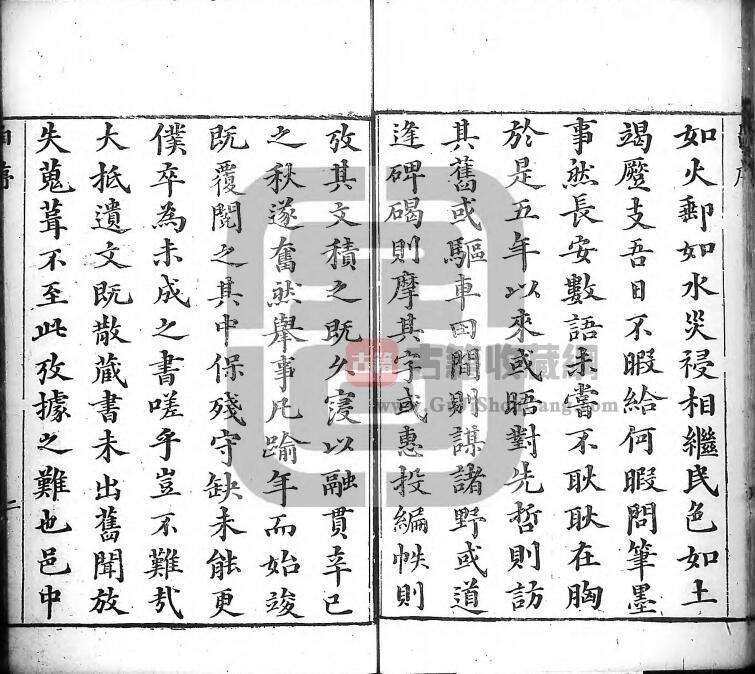 如火郵如水災祲相繼民色如土
竭蹷支吾日不暇給何暇問筆墨
事然長安數語未嘗不耿耿在胸
於是五年以來或晤對先哲則訪
其舊或驅車田間則謀諸野或道
逢碑碣則摩其字或惠投編帙則
攷其文積之既久寖以融貫辛巳
之秋遂奮然舉事凡踰年而始竣
既覆閱之其中保殘守缺未能更
僕卒為未成之書嗟乎豈不難哉
大抵遺文既散藏書未出舊聞放
失蒐葺不至此攷據之難也邑中
自序
二
古籍
古籍收藏網